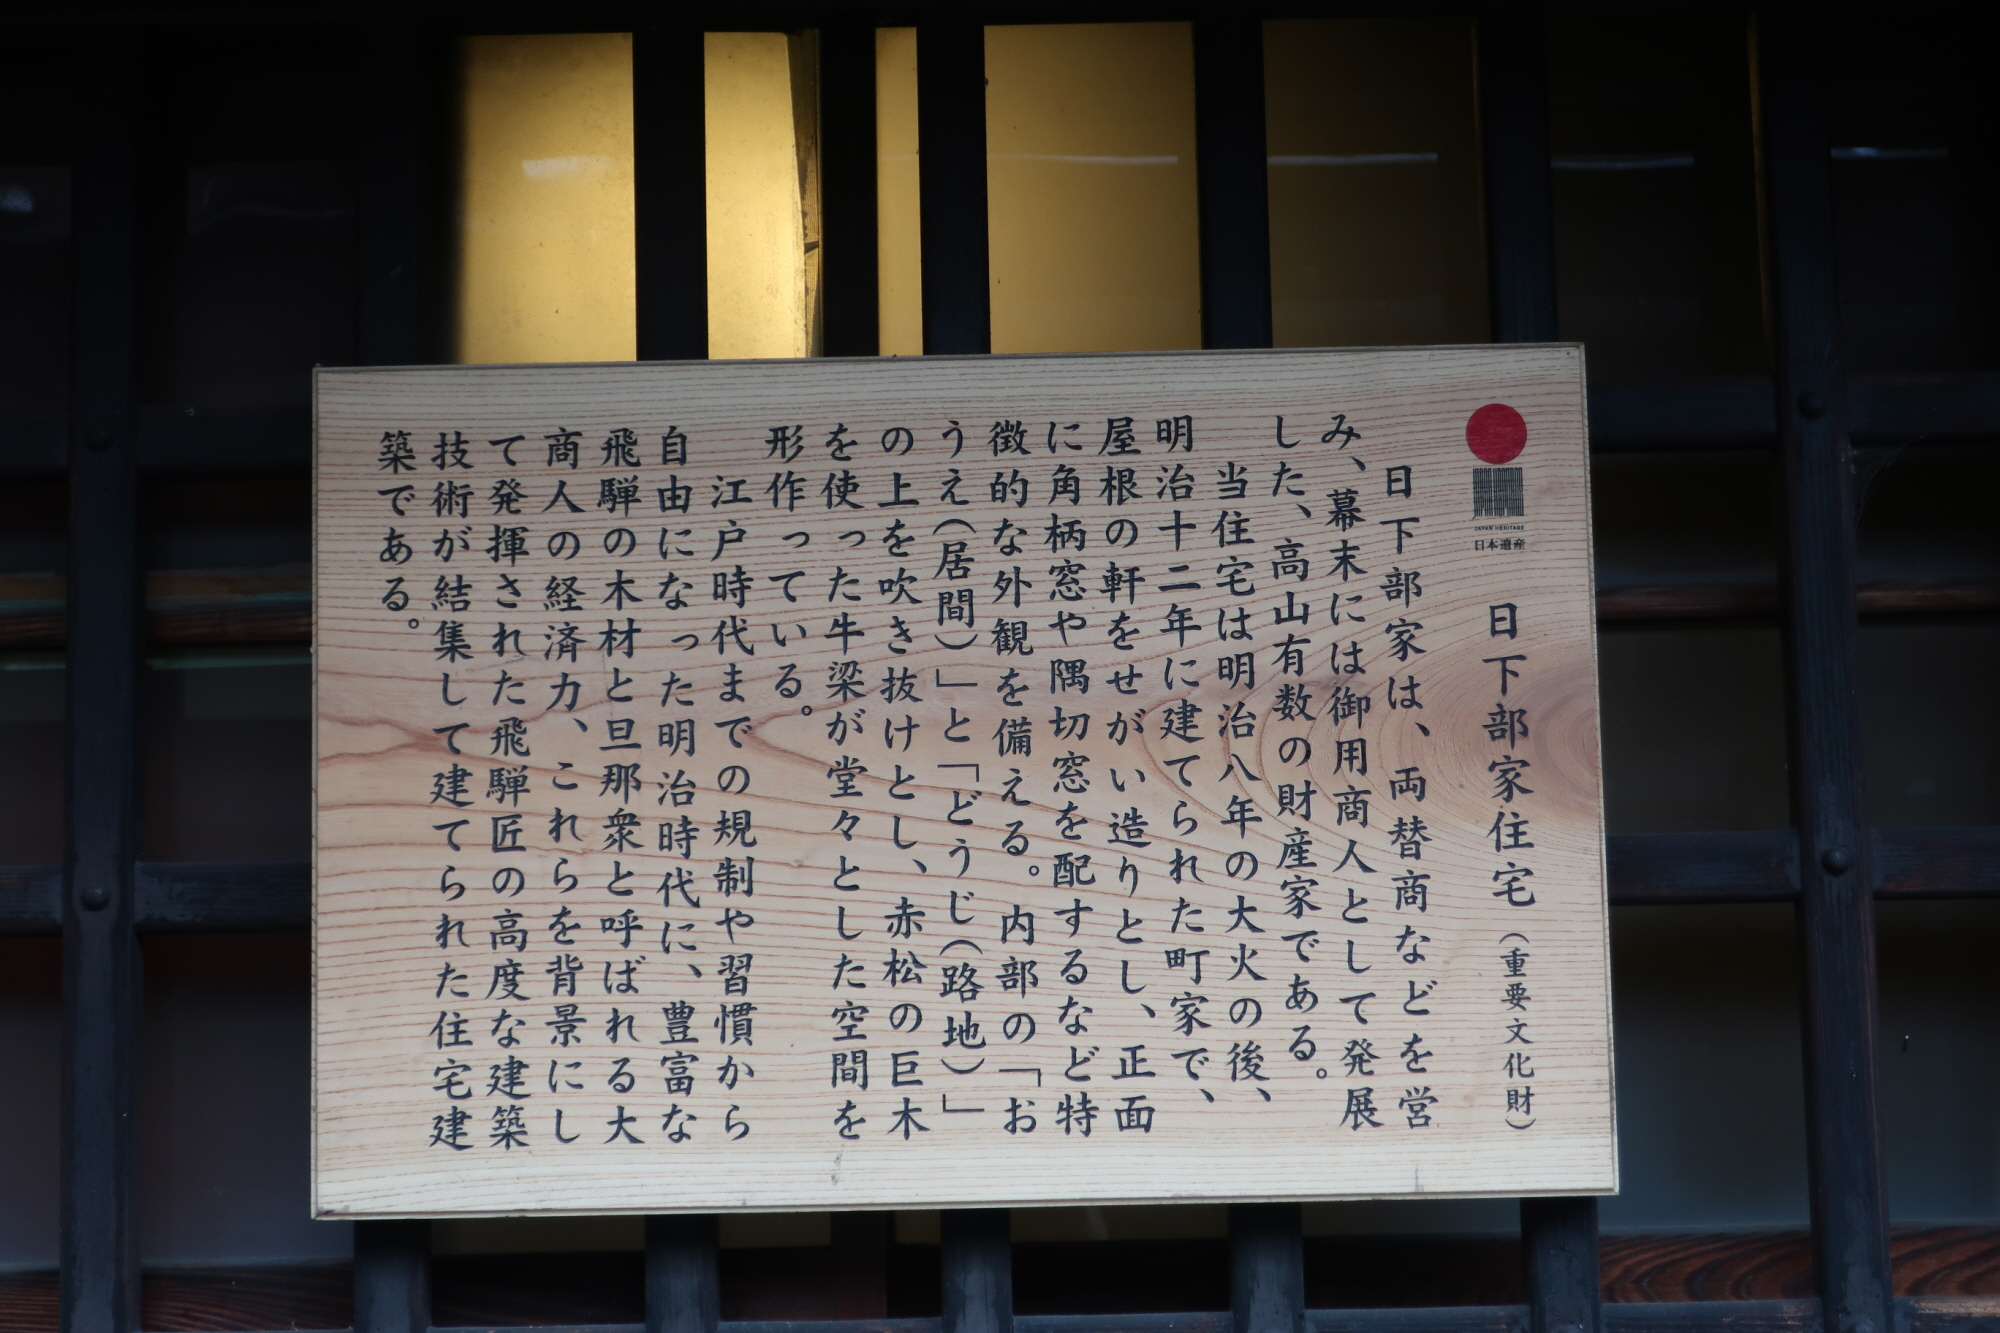 JAPAN HERITAGE
日本遺産
日下部家住宅（重要文化財）
日下部家は、両替商などを営
み、幕末には御用商人として発展
した、高山有数の財産家である。
当住宅は明治八年の大火の後、
明治十二年に建てられた町家で、
屋根の軒をせがい造りとし、正面
に角柄窓や隅切窓を配するなど特
徴的な外観を備える。内部の「お
うえ（居間）」と「どうじ（路地）」
の上を吹き抜けとし、赤松の巨木
を使った牛梁が堂々とした空間を
形作っている。
江戸時代までの規制や習慣から
自由になった明治時代に、豊富な
飛騨の木材と旦那衆と呼ばれる大
商人の経済力、これらを背景にし
て発揮された飛騨匠の高度な建築
技術が結集して建てられた住宅建
築である。